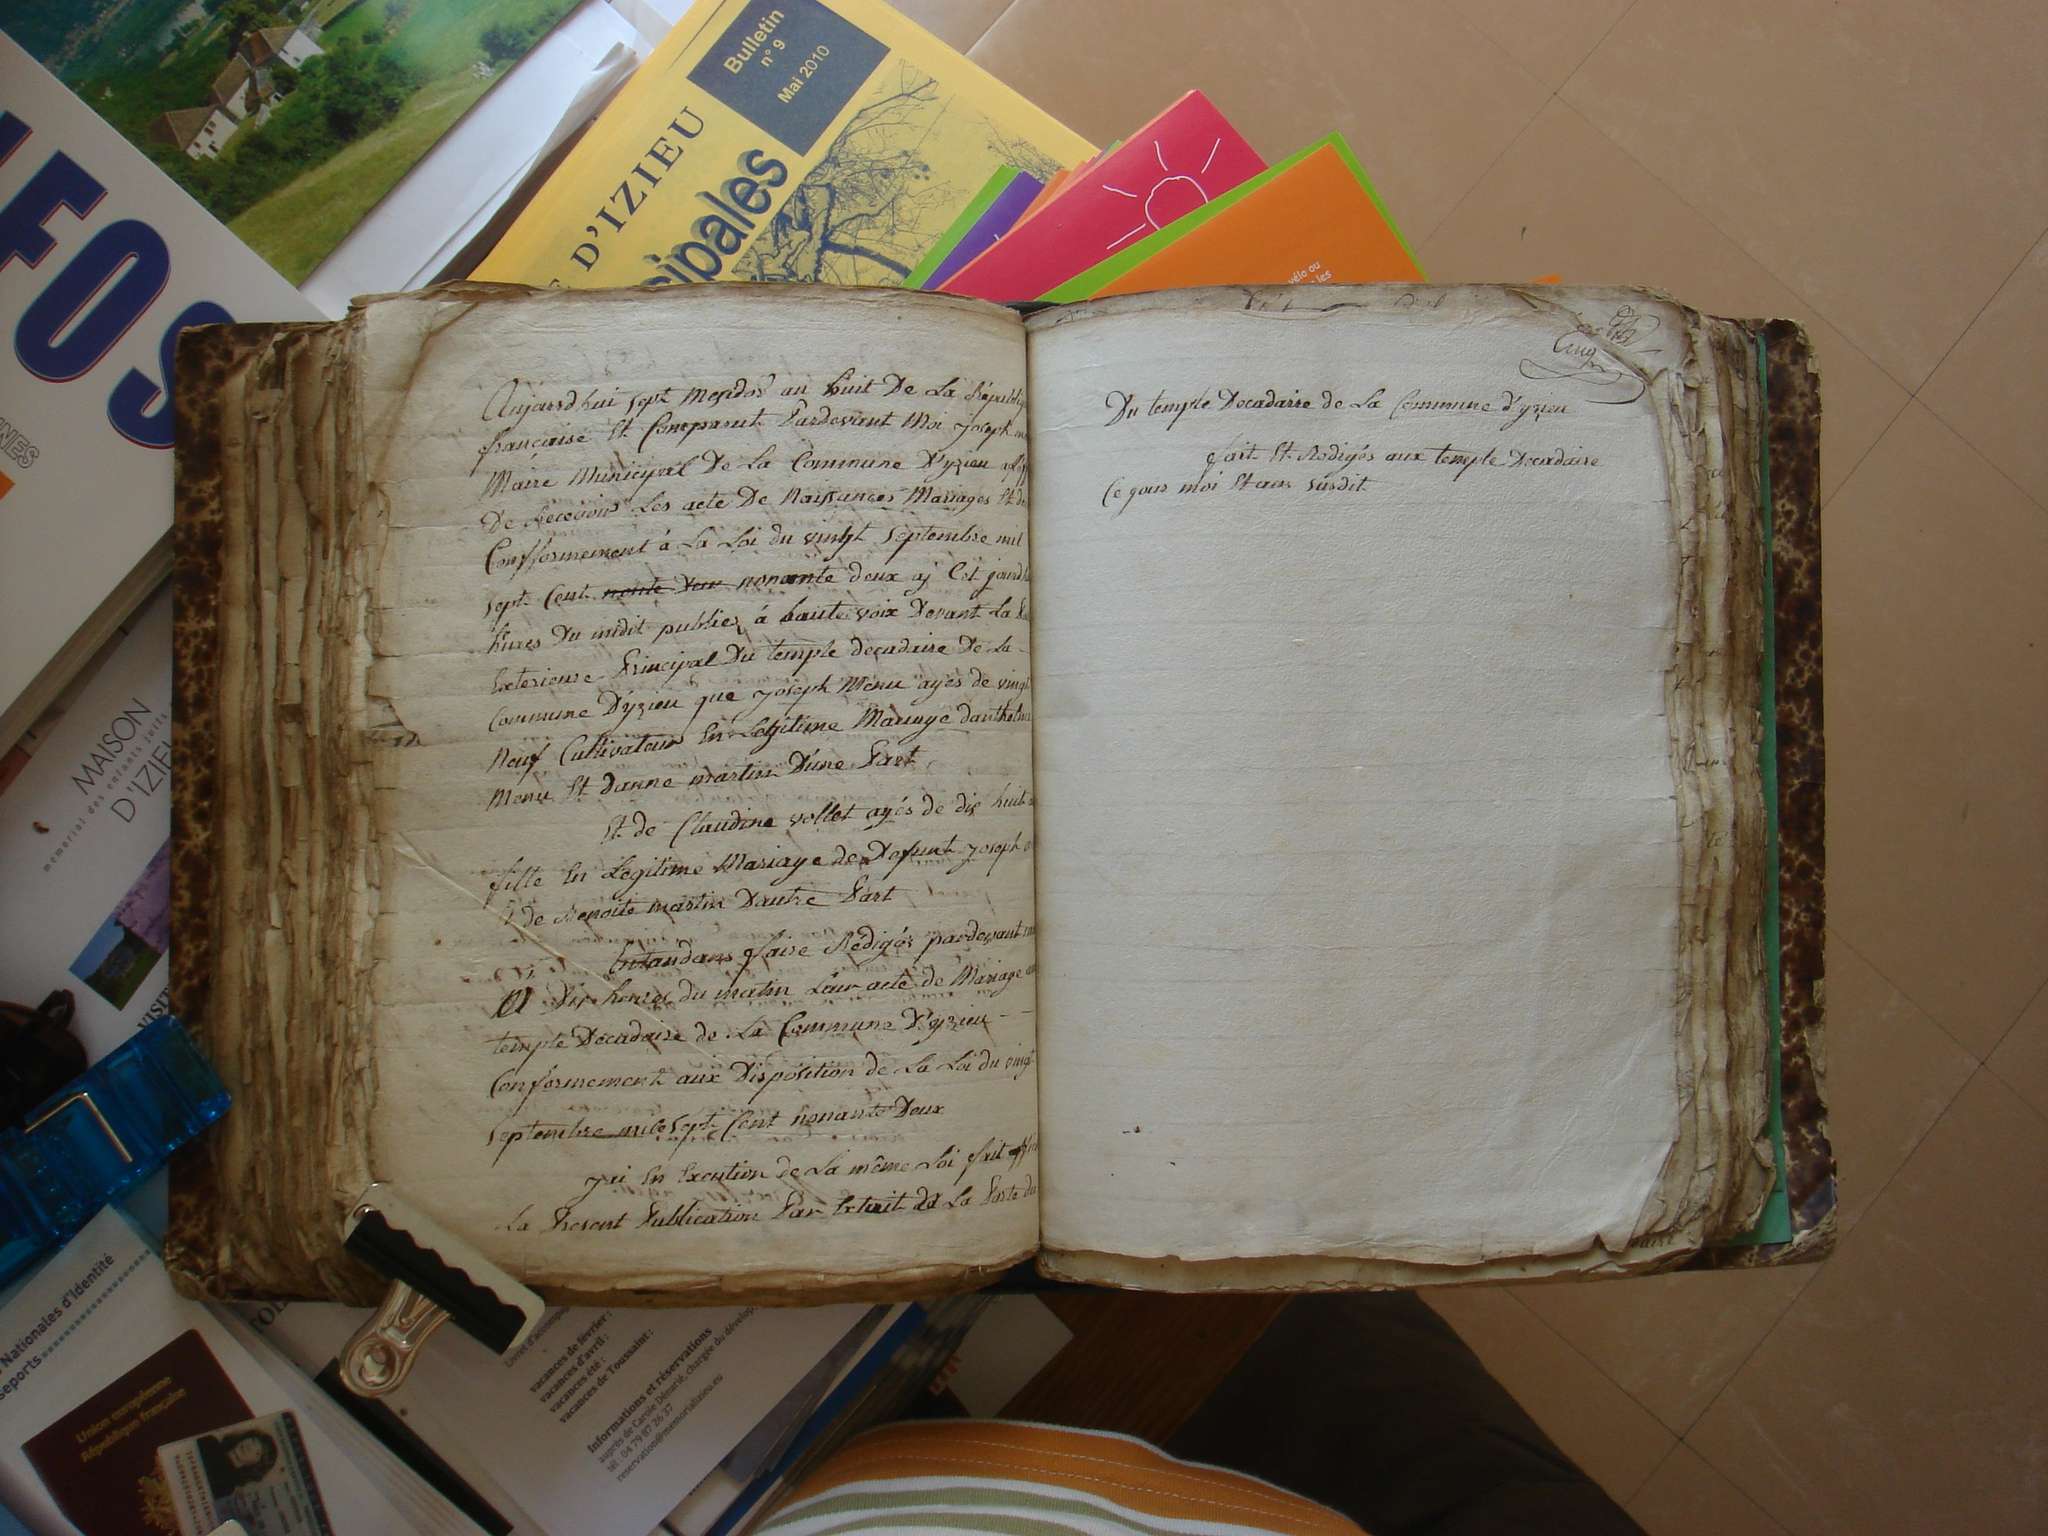 Bulletin
n° 9
Mai 2010
D'IZIEU
cipales
FOS
NES
vélo ou
les
MAISON
D'IZIEU
mémorial des enfants juifs
VISIT
Aujourdhui sept Messidor an huit De La Républiq
française Et Comparut Pardevant Moi joseph
Maire Municipal De La Commune D'yzieu
De Recevoir Les acte De Naissances Mariages Et de
Confformement á La Loi du vingt Septembre mil
sept Cent nonante deux Cet jourdhui
hures Du midit publiez á haute voix Devant La
Exterieure Principal Du temple decadaire De La
Commune D'yzieu que joseph Menu agés de vingt
Neuf Cultivateur En Legitime Mariage danthelme
Menu Et Danne martin D'une Part
Et de Claudine vollet agés de dix huit
fille En Legitime Mariage de Defunt joseph
Et de Benoite martin Dautre Part
Entandans faire Rédigés pardevant
A Dix heures du matin Leur acte de Mariage au
temple Decadaire de La Commune D'yzieu
Conformement aux Disposition de La Loi du vingt
Septembre mile Sept Cent nonante Deux
j'ai En Execution de La même Loi fait
La Present Publication Par Extrait de La Porte du
Du temple Decadaire de La Commune d'yzieu
fait Et Rodigés aux temple Decadaire
Ce jour moi Et an susdit
Nationales d'Identité
seports
Union européenne
République française
vacances de février :
vacances d'avril :
vacances été :
vacances de Toussaint :
Informations et réservations
auprès de Carole Dénarié, chargée du dévelop
tél : 04 79 87 26 37
reservation@memorializieu.eu